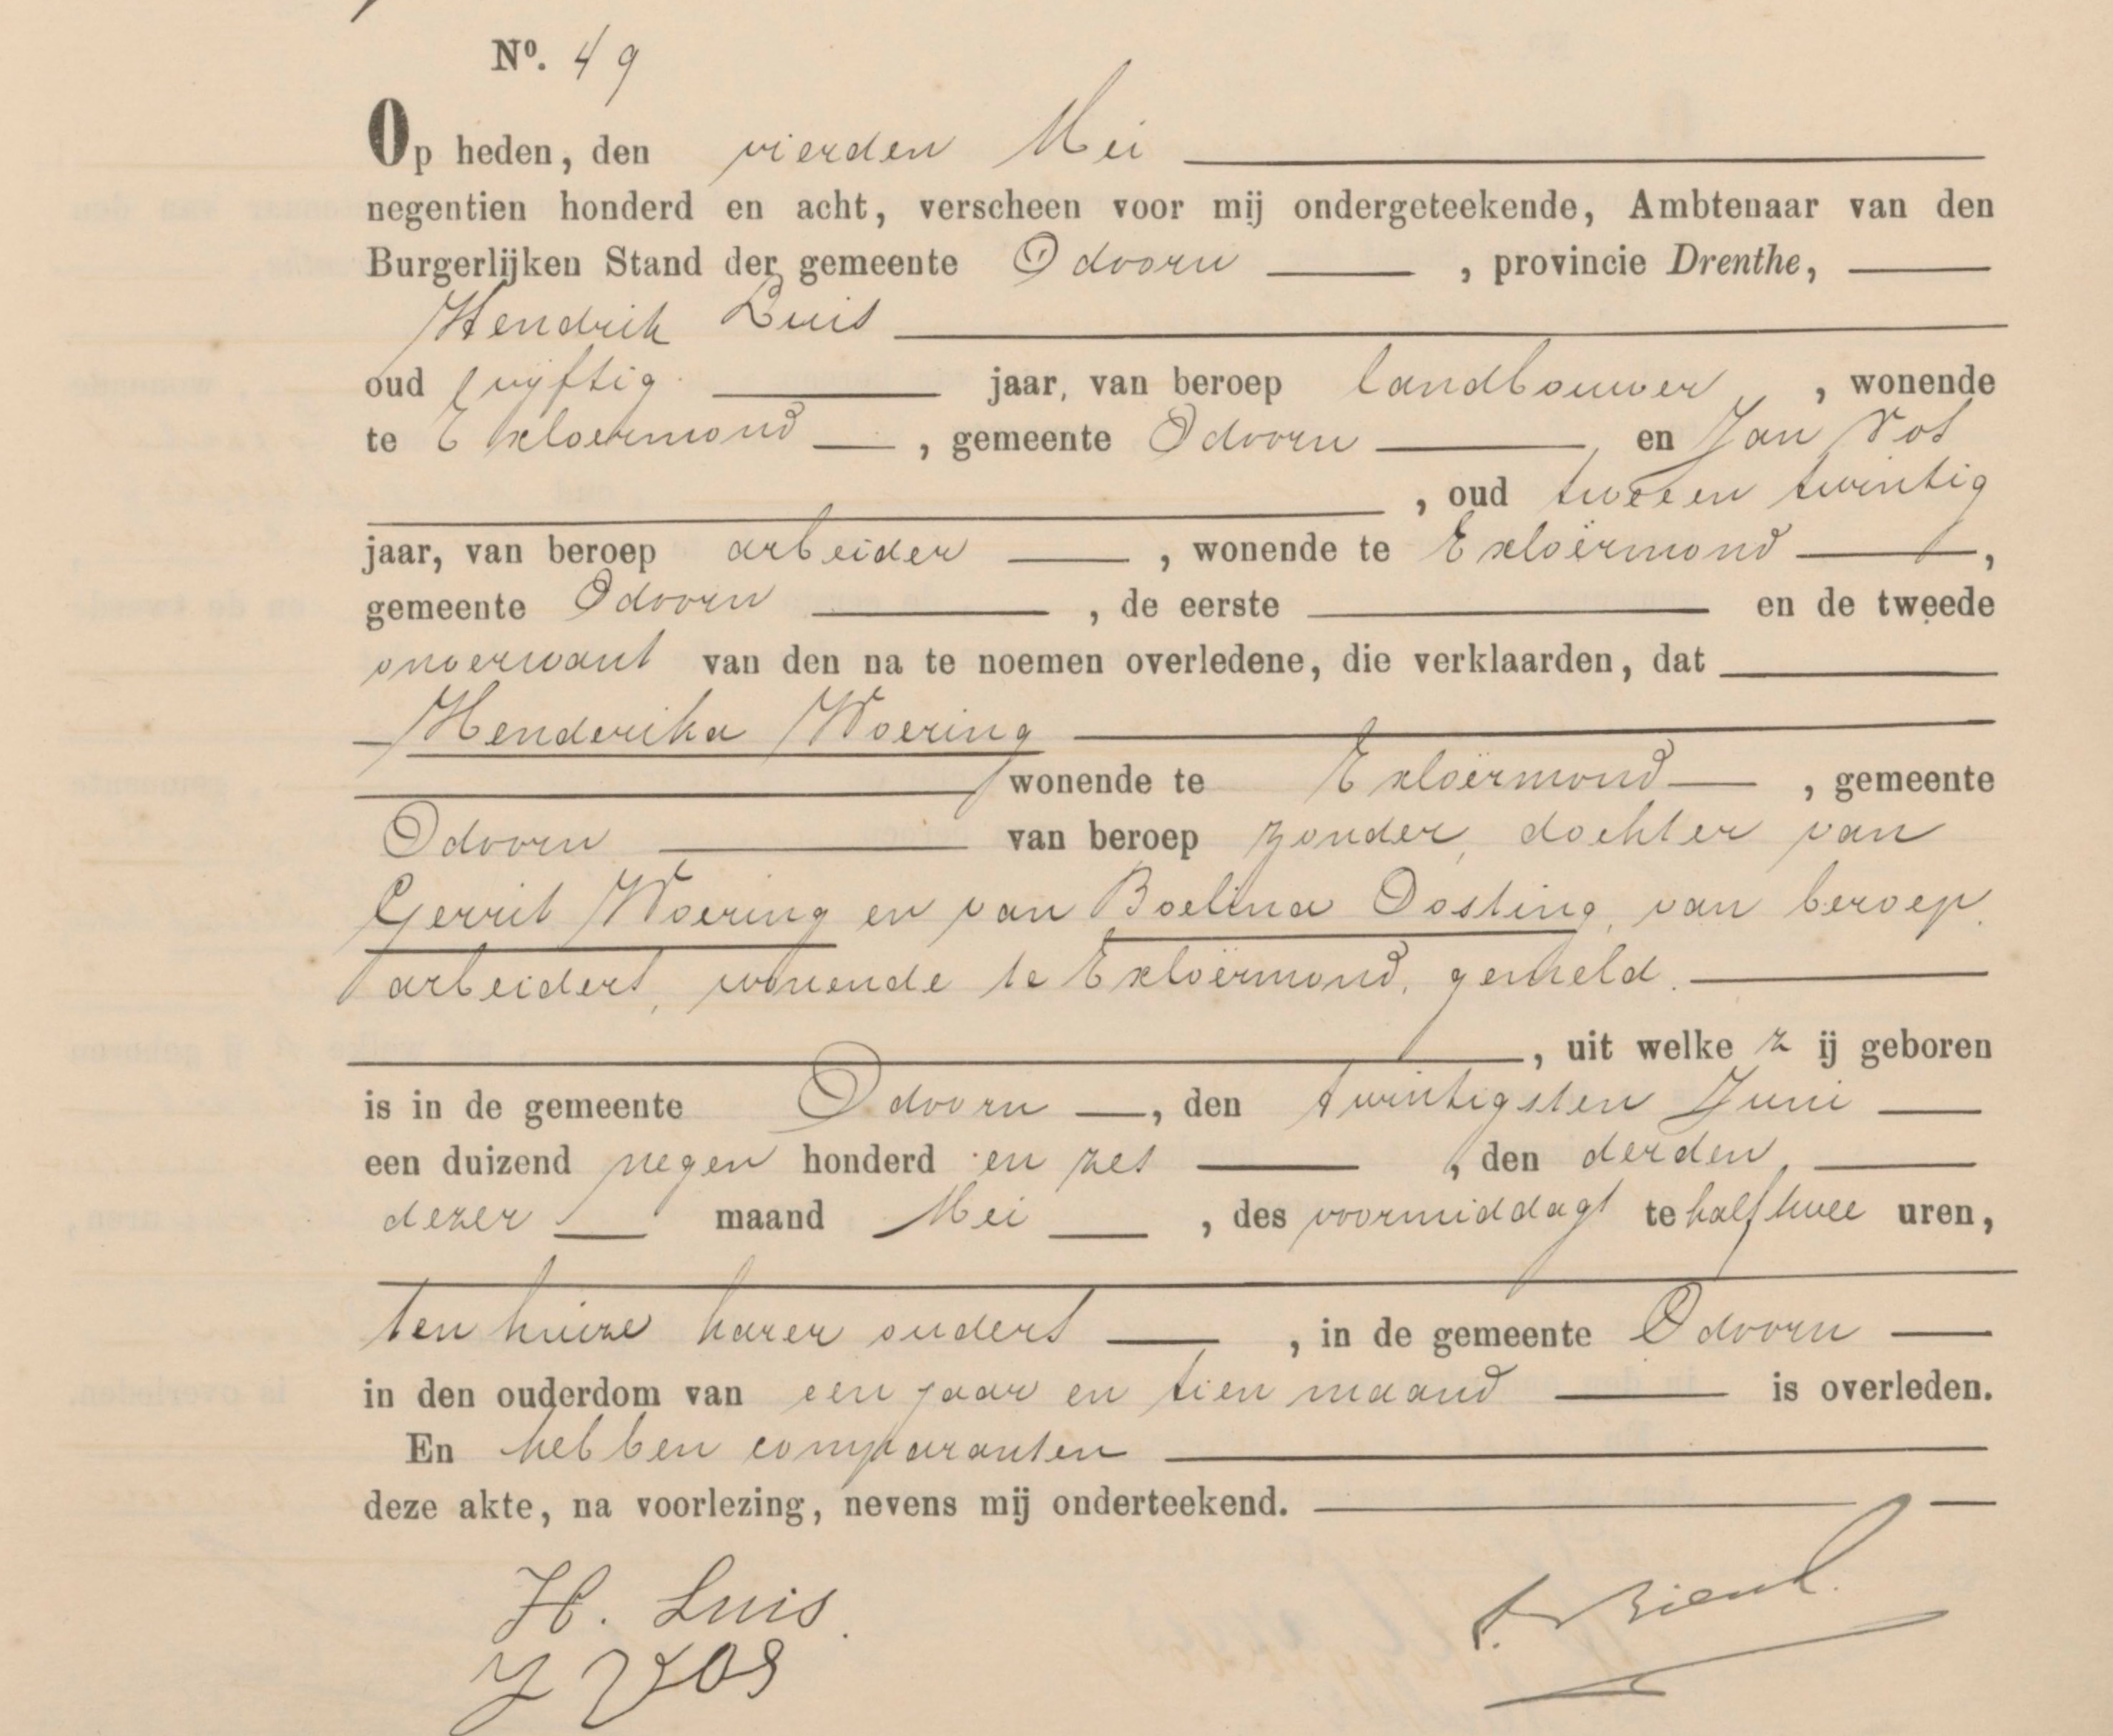 Nº. 49
Op heden, den vierden Mei
negentien honderd en acht, verscheen voor mij ondergeteekende, Ambtenaar van den
Burgerlijken Stand der gemeente Odoorn, provincie Drenthe,
Hendrik Luis
oud vijftig jaar, van beroep landbouwer, wonende
te Exloërmond, gemeente Odoorn en Jan Vos
, oud twee en twintig
jaar, van beroep arbeider, wonende te Exloërmond,
gemeente Odoorn, de eerste en de tweede
onverwant van den na te noemen overledene, die verklaarden, dat
Henderika Woering
wonende te Exloërmond, gemeente
Odoorn van beroep zonder, dochter van
Gerrit Woering en van Boelina Oosting, van beroep
arbeiders, wonende te Exloërmond, gemeld.
, uit welke z ij geboren
is in de gemeente Odoorn, den twintigsten Juni
een duizend negen honderd en zes, den derden
dezer maand Mei, des voormiddags te half twee uren,
ten huize harer ouders, in de gemeente Odoorn
in den ouderdom van een jaar en tien maand is overleden.
En hebben comparanten
deze akte, na voorlezing, nevens mij onderteekend.
H. Luis.
J Vos